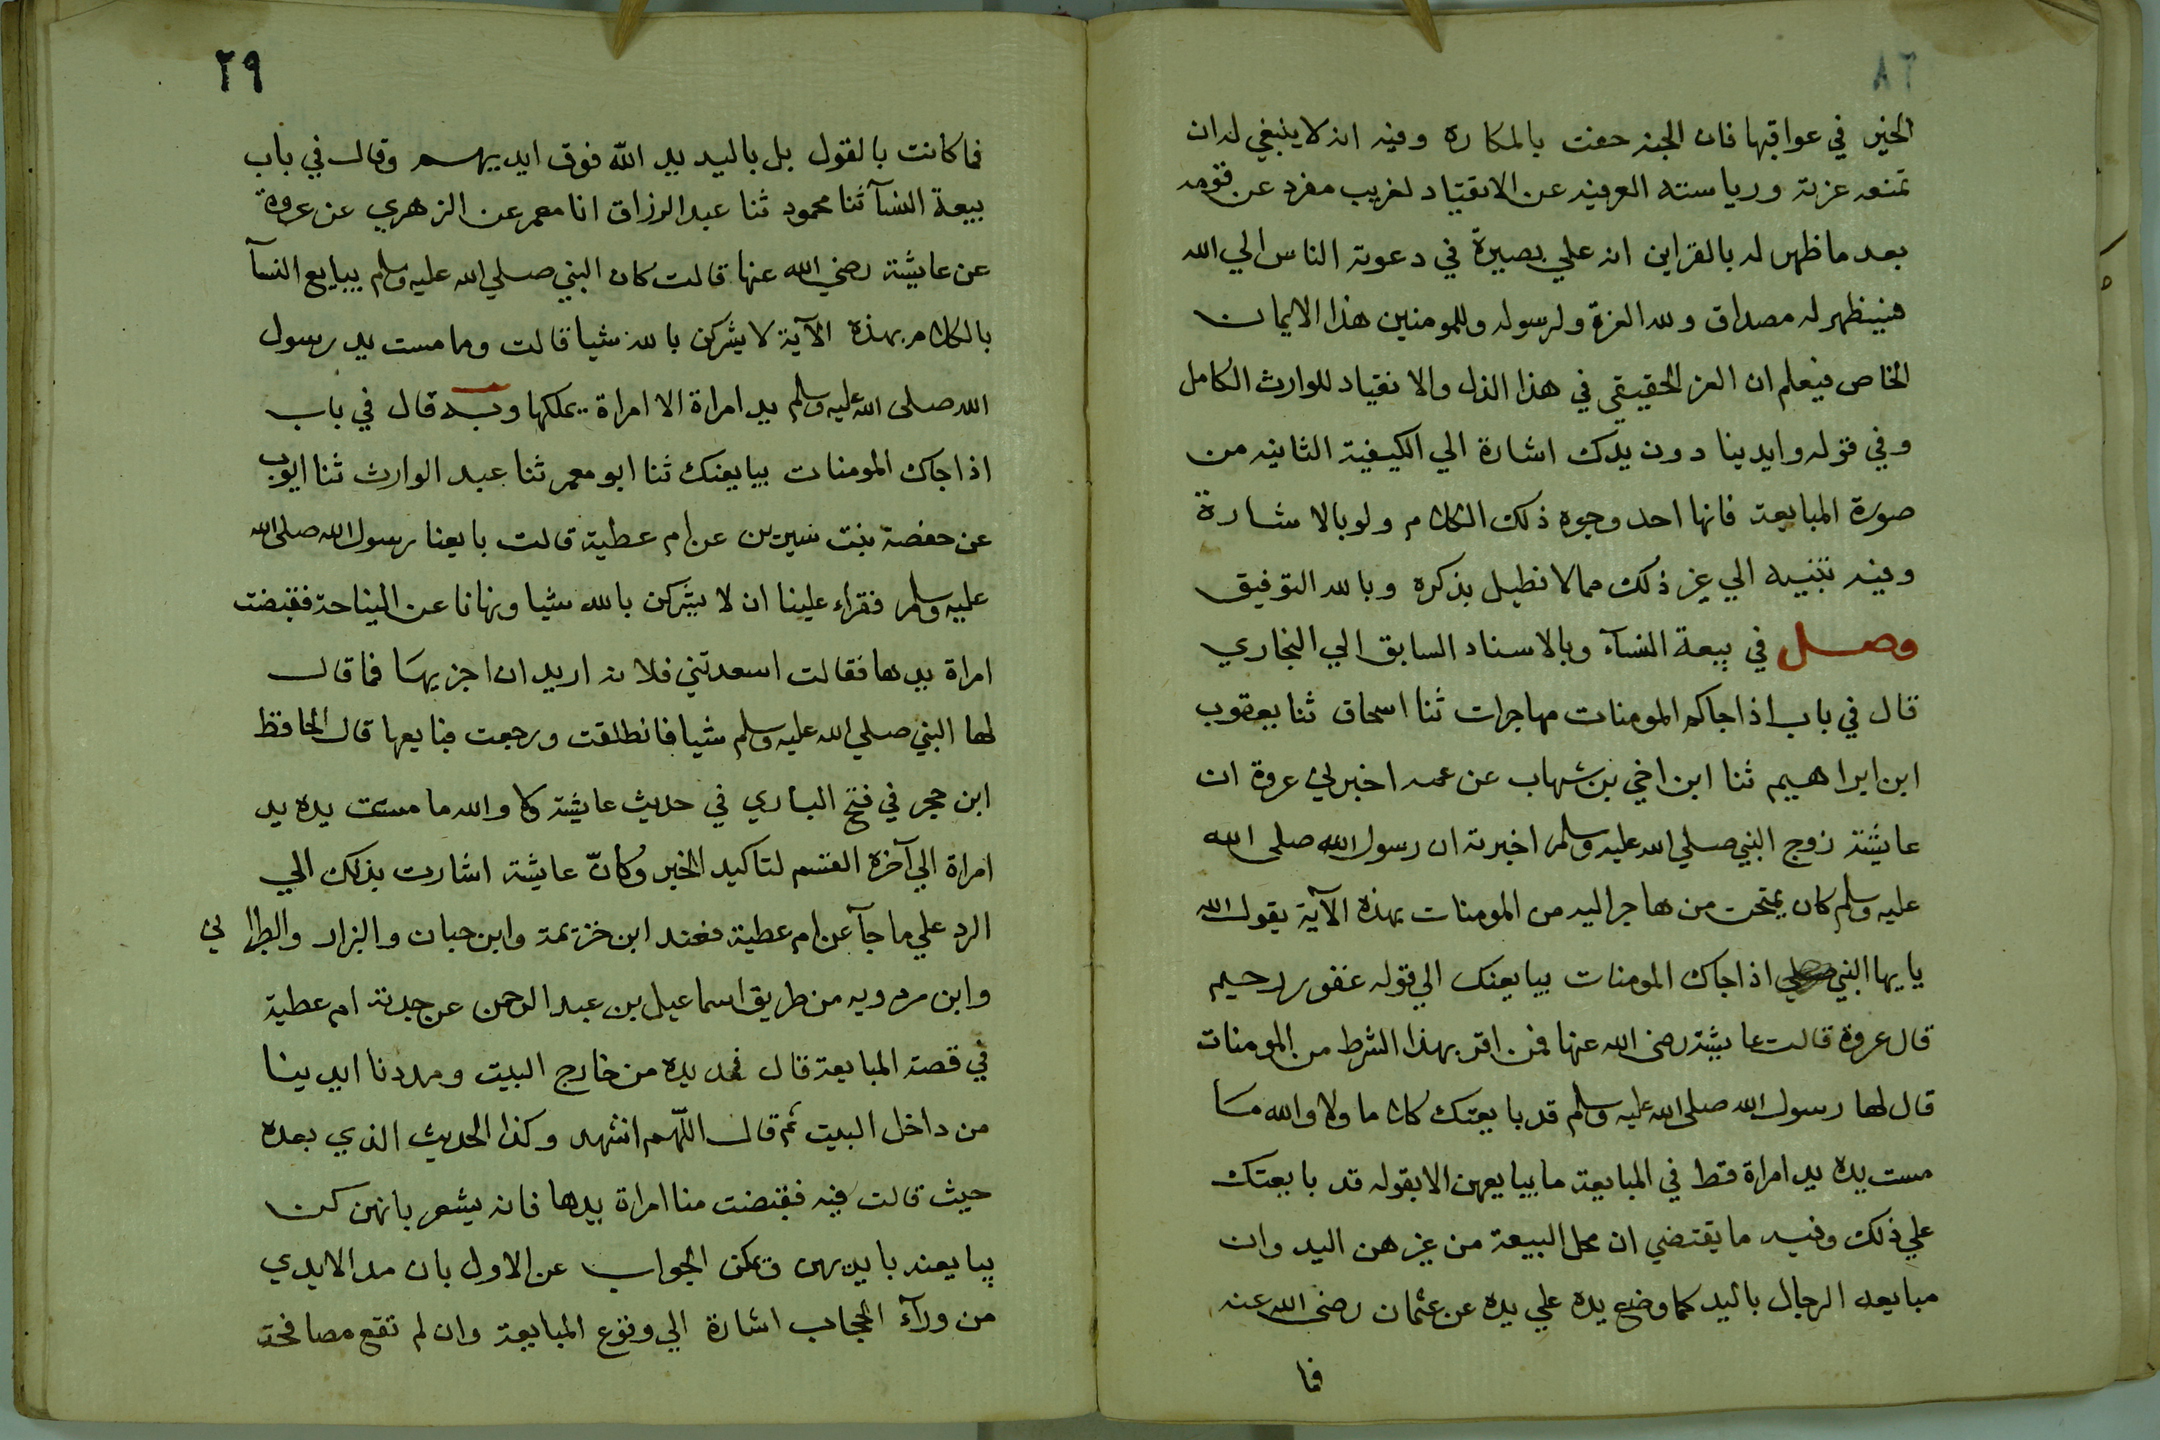 الخير في عواقبها فان الجنه حفت بالمكاره وفيه انه لا ينبغي له ان
تمنعه عزته ورياسته العرفيه عن الانقياد لغريب مفرد عن قومه
بعد ما ظهر له بالقراين انه علي بصيرة في دعوته الناس الي الله
فيظهر له مصداق ولله العزة ولرسوله وللمومنين هذا الايمان
الخاص فيعلم ان العز الحقيقي في هذا الذل والانقياد للوارث الكامل
وفي قوله وايدينا دون يدك اشارة الي الكيفية الثانيه من
صورة المبايعة فانها احد وجوه ذلك الكلام ولو بالاشارة
وفيه تنبيه الي غير ذلك مما لا نطيل بذكره وبالله التوفيق
وصل في بيعة النسآء وبالاسناد السابق الي البخاري
قال في باب اذا جاكم المومنات مهاجرات ثنا اسحاق ثنا يعقوب
ابن ابراهيم ثنا ابن اخي بن شهاب عن عمه اخبرني عروة ان
عايشة زوج النبي صلي الله عليه وسلم اخبرته ان رسول الله صلى الله
عليه وسلم كان يمتحن من هاجر اليه من المومنات بهذه الآية يقول الله
يايها النبي اذا جاك المومنات يبايعنك الي قوله غفور رحيم
قال عروة قالت عايشة رضى الله عنها فمن اقر بهذا الشرط من المومنات
قال لها رسول الله صلى الله عليه وسلم قد بايعتك كلاما ولا والله ما
مست يده يد امراة قط في المبايعة ما يبايعهن الا بقوله قد بايعتك
علي ذلك وفيه ما يقتضي ان محل البيعة من غيرهن اليد وان
مبايعه الرجال باليد كما وضع يده علي يده عن عثمان رضى الله عنه
فما
٢٩
فما كانت بالقول بل باليد يد الله فوق ايديهم وقال في باب
بيعة النسآ ثنا محمود ثنا عبد الرزاق انا معمر عن الزهري عن عروة
عن عايشة رضي الله عنها قالت كان النبي صلي الله عليه وسلم يبايع النسآ
بالكلام بهذه الآية لا يشركن بالله شيا قالت وما مست يد رسول
الله صلى الله عليه وسلم يد امراة الا امراة يملكها وبه قال في باب
اذا جاك المومنات يبايعنك ثنا ابو معمر ثنا عبد الوارث ثنا ايوب
عن حفصة بنت سيرين عن ام عطية قالت بايعنا رسول الله صلى الله
عليه وسلم فقراء علينا ان لا يشركن بالله شيا ونهانا عن النياحة فقبضت
امراة يدها فقالت اسعدتني فلانه اريد ان اجزيها فما قال
لها النبي صلي الله عليه وسلم شيا فانطلقت ورجعت فبايعها قال الحافظ
ابن حجر في فتح الباري في حديث عايشة ولا والله ما مست يده يد
امراة الي آخره القسم لتاكيد الخبر وكأنّ عايشة اشارت بذلك الي
الرد علي ما جآ عن ام عطية فعند ابن خزيمة وابن حبان والبزار والطبراني
وابن مردويه من طريق اسماعيل بن عبد الرحمن عن جدته ام عطية
في قصة المبايعة قال فمد يده من خارج البيت ومددنا ايدينا
من داخل البيت ثم قال اللّهم اشهد وكذا الحديث الذي بعده
حيث قالت فيه فقبضت منا امراة يدها فانه يشعر بانهن كن
يبايعنه بايديهن ويمكن الجواب عن الاول بان مد الايدي
من ورآء الحجاب اشارة الي وقوع المبايعة وان لم تقع مصافحة